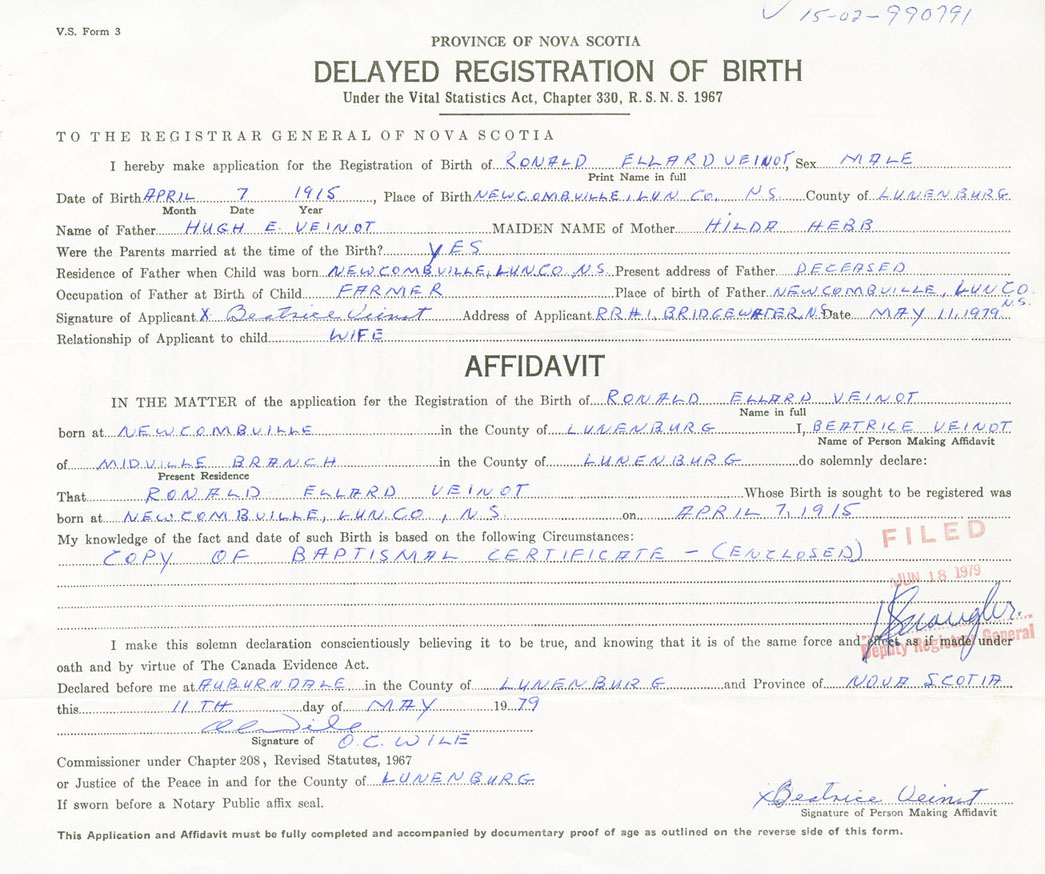 ✓ 15-02-990791
V.S. Form 3
PROVINCE OF NOVA SCOTIA
DELAYED REGISTRATION OF BIRTH
Under the Vital Statistics Act, Chapter 330, R. S. N. S. 1967
TO THE REGISTRAR GENERAL OF NOVA SCOTIA
I hereby make application for the Registration of Birth of RONALD ELLARD VEINOT, Sex MALE
Print Name in full
Date of Birth APRIL 7 1915, Place of Birth NEWCOMBVILLE, LUN CO. N.S. County of LUNENBURG
Month Date Year
Name of Father HUGH E. VEINOT MAIDEN NAME of Mother HILDA HEBB
Were the Parents married at the time of the Birth? YES
Residence of Father when Child was born NEWCOMBVILLE, LUN.CO, N.S. Present address of Father DECEASED
Occupation of Father at Birth of Child FARMER Place of birth of Father NEWCOMBVILLE, LUN CO. N.S.
Signature of Applicant X Beatrice Veinot Address of Applicant R.R.#1, BRIDGEWATER, N.S. Date MAY 11, 1979
Relationship of Applicant to child WIFE
AFFIDAVIT
IN THE MATTER of the application for the Registration of the Birth of RONALD ELLARD VEINOT
Name in full
born at NEWCOMBVILLE in the County of LUNENBURG I, BEATRICE VEINOT
Name of Person Making Affidavit
of MIDVILLE BRANCH in the County of LUNENBURG do solemnly declare:
Present Residence
That RONALD ELLARD VEINOT Whose Birth is sought to be registered was
born at NEWCOMBVILLE, LUN.CO, N.S. on APRIL 7, 1915
My knowledge of the fact and date of such Birth is based on the following Circumstances:
COPY OF BAPTISMAL CERTIFICATE - (ENCLOSED)
FILED
JUN 18 1979
Deputy Registrar General
I make this solemn declaration conscientiously believing it to be true, and knowing that it is of the same force and effect as if made under
oath and by virtue of The Canada Evidence Act.
Declared before me at AUBURNDALE in the County of LUNENBURG and Province of NOVA SCOTIA
this 11TH day of MAY 1979
Signature of O.C. WILE
Commissioner under Chapter 208, Revised Statutes, 1967
or Justice of the Peace in and for the County of LUNENBURG
If sworn before a Notary Public affix seal.
X Beatrice Veinot
Signature of Person Making Affidavit
This Application and Affidavit must be fully completed and accompanied by documentary proof of age as outlined on the reverse side of this form.